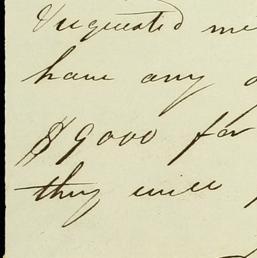 requested me
have any
$9000 for
they will